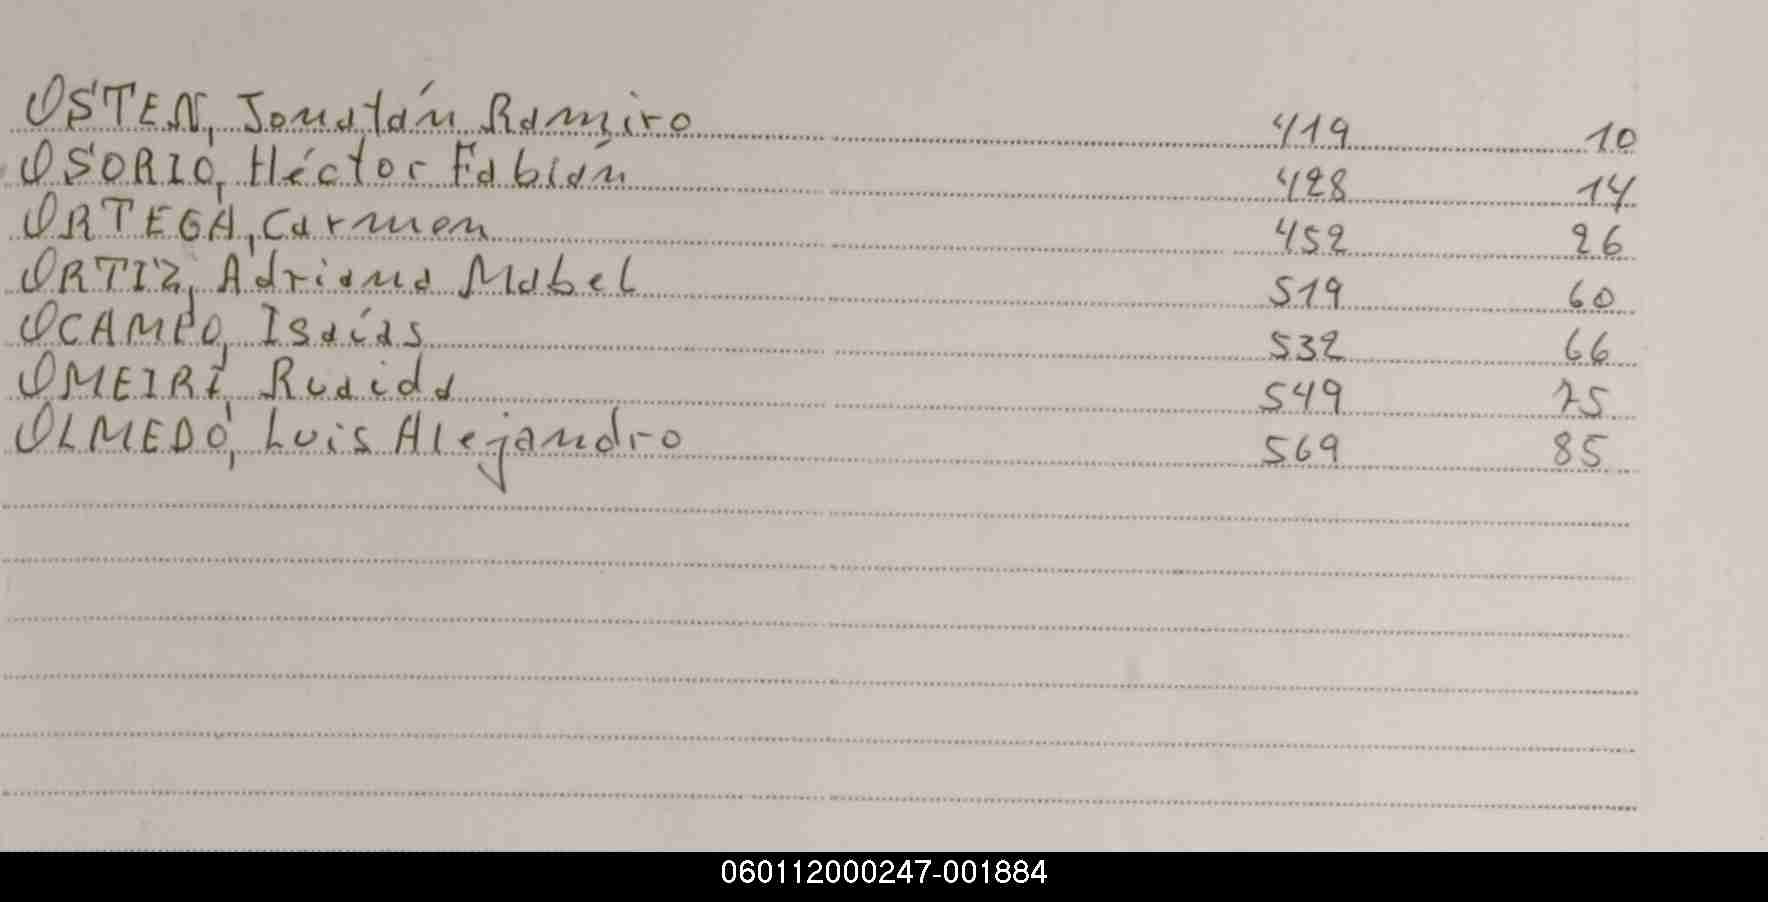 OSTEN, Jonatán Ramiro 419 10
OSORIO, Héctor Fabián 428 14
ORTEGA, Carmen 452 26
ORTIZ, Adriana Mabel 519 60
OCAMPO, Isaías 532 66
OMEIRI, Rusida 549 75
OLMEDO, Luis Alejandro 569 85
060112000247-001884